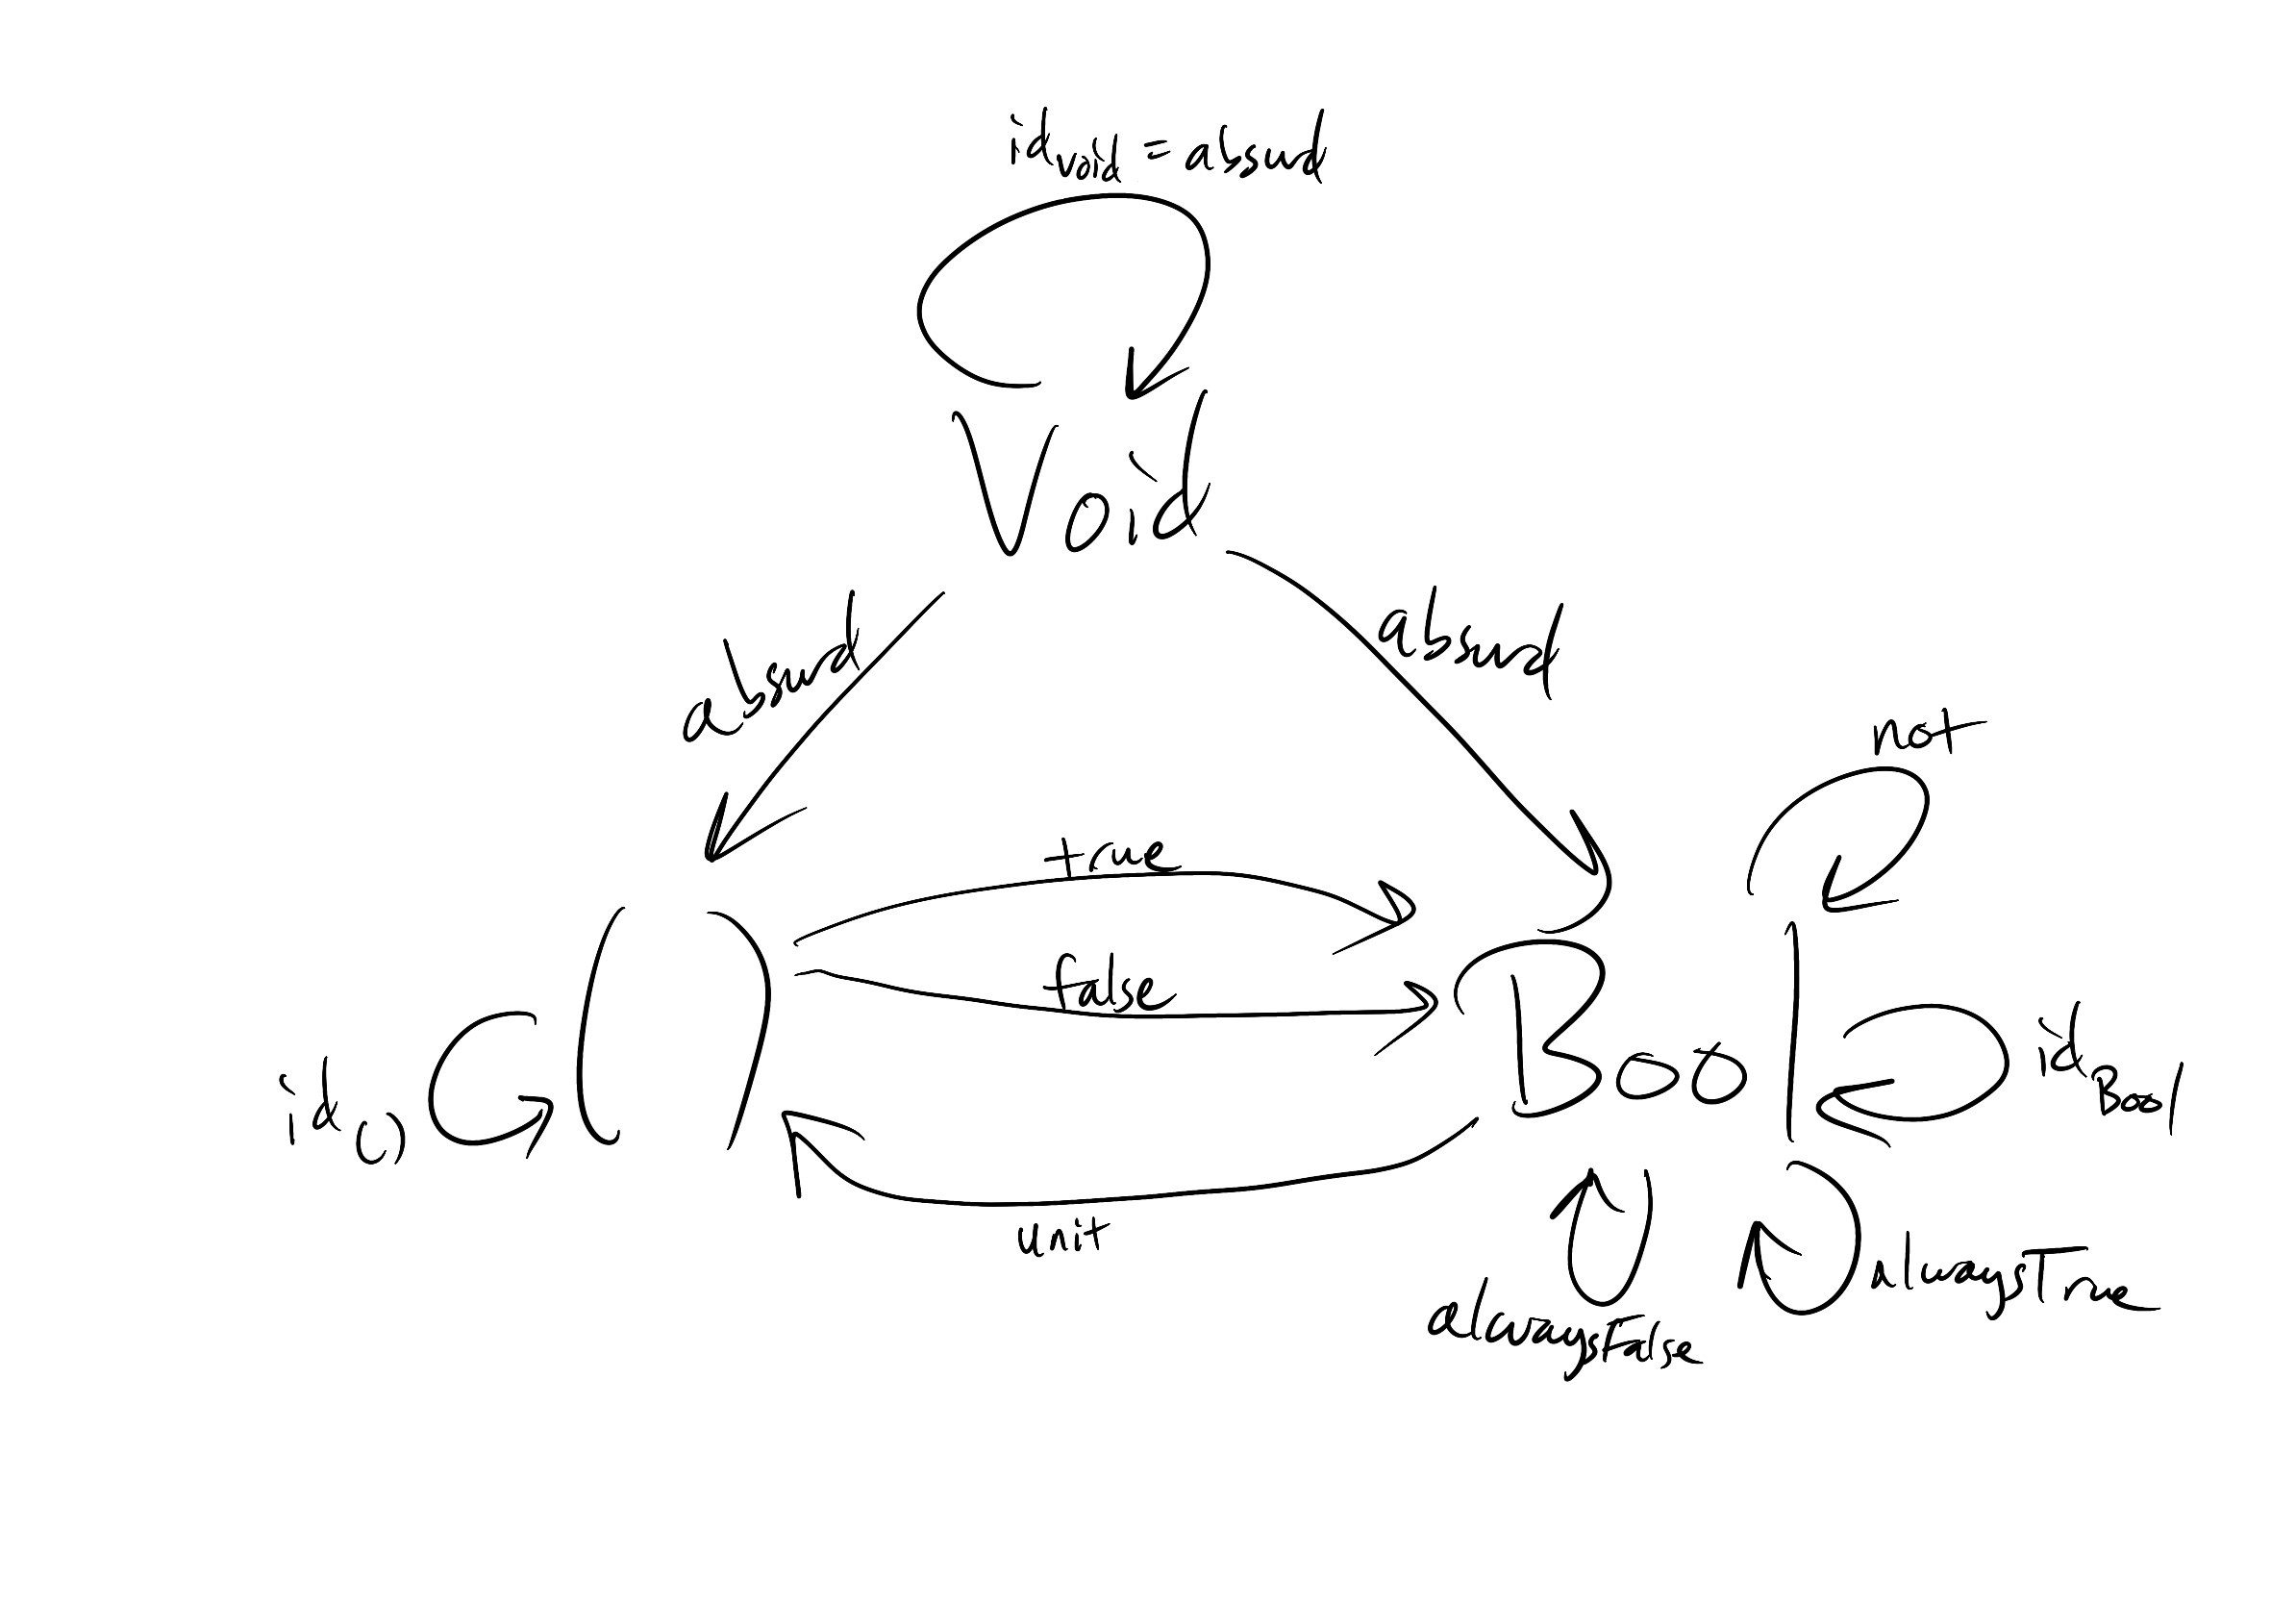 id_Void = absurd
Void
absurd
absurd
not
true
false
()
Bool
id_()
id_Bool
unit
alwaysFalse
alwaysTrue